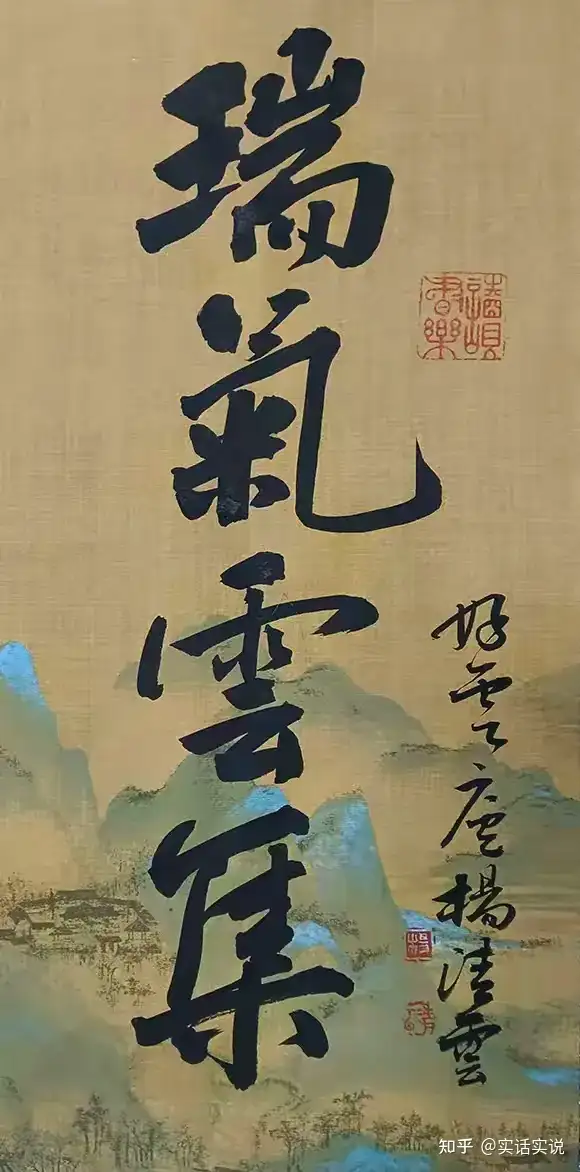 瑞氣雲集
好雲廬楊清雲
知乎 @实话实说